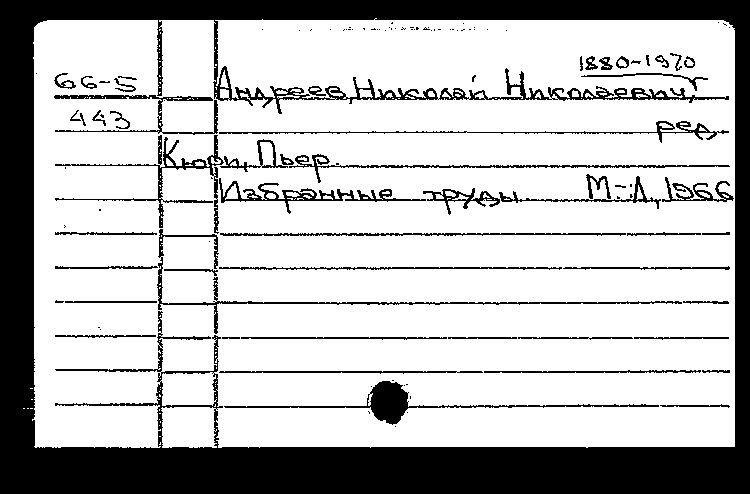 1880-1970
66-5 Андреев, Николай Николаевич,
443 ред.
Кюри, Пьер.
Избранные труды. М.-Л., 1966